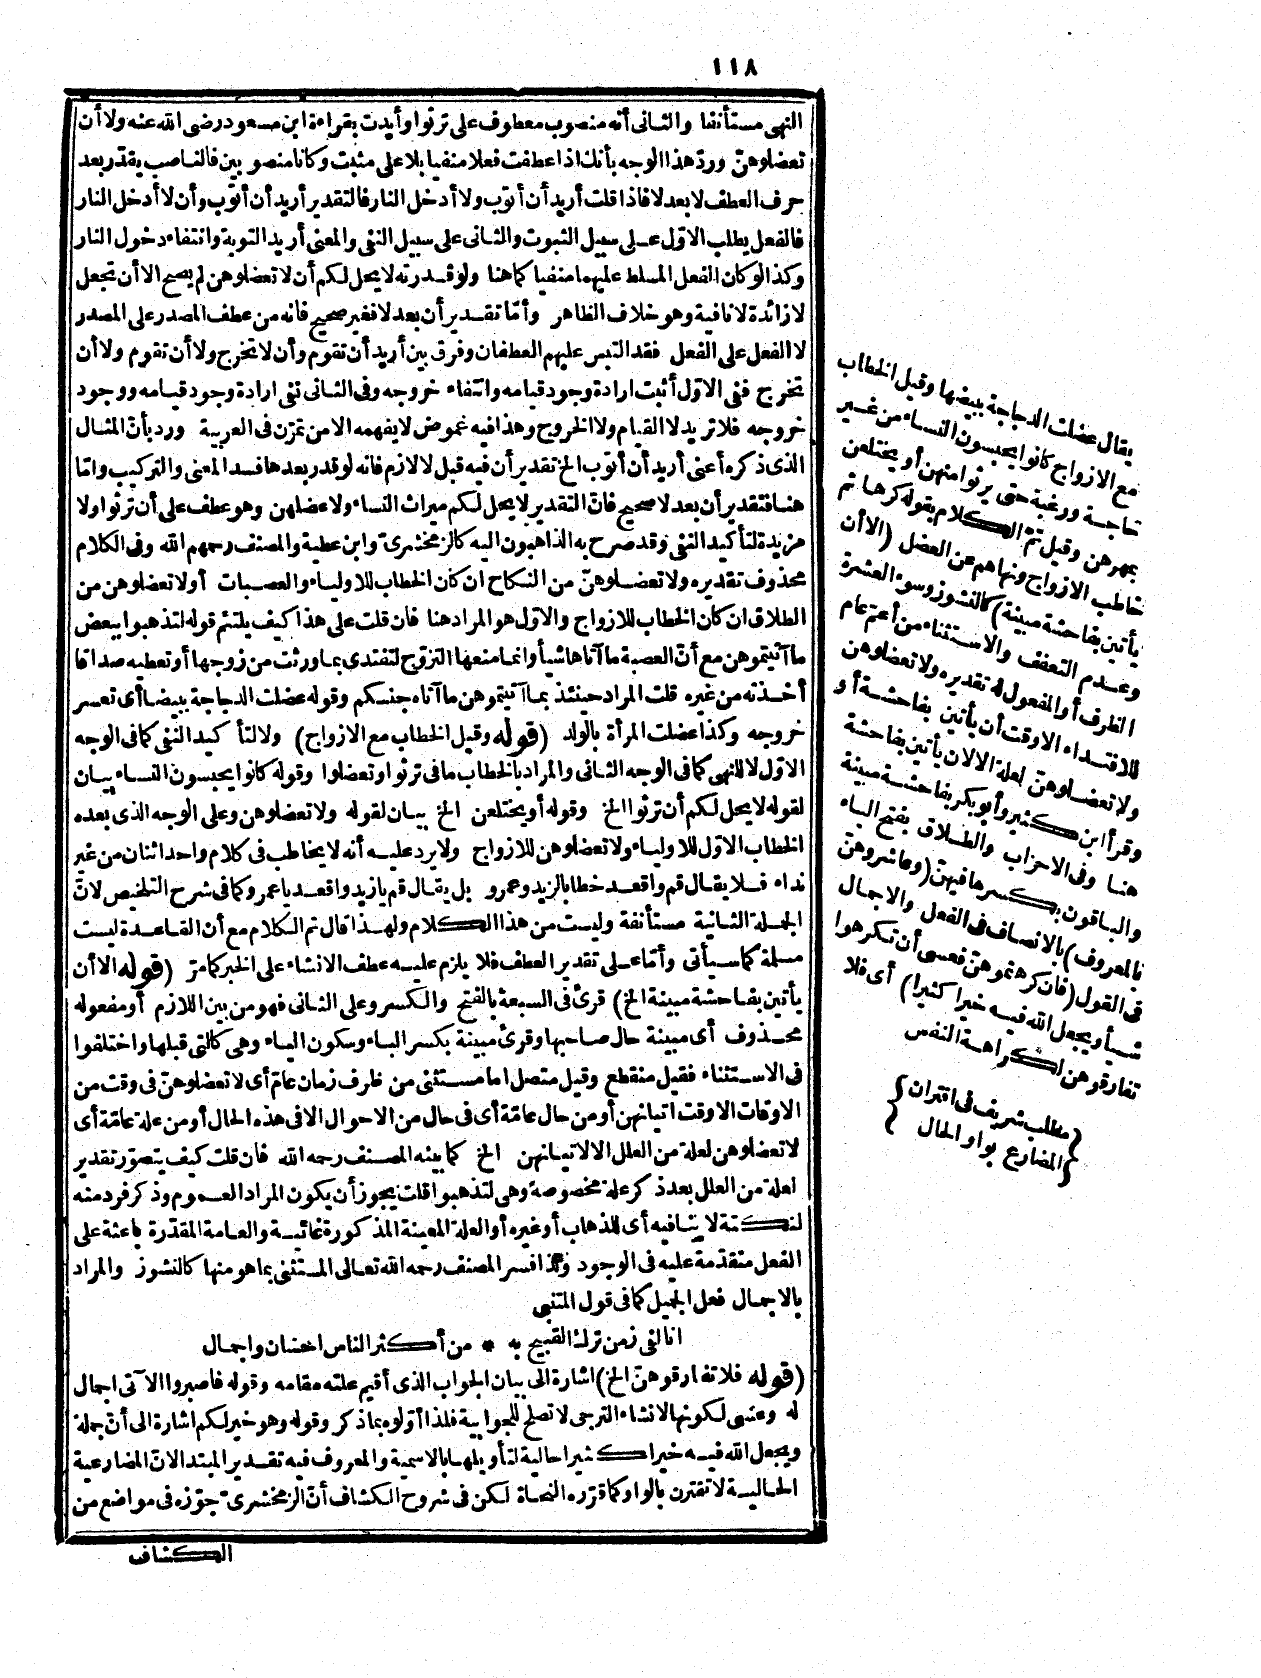 ١١٨
النهى مستأنفا والثانى أنه منصوب معطوف على ترثوا وأيدت بقراءة ابن مسعود رضى الله عنه ولا أن
تعضلوهنّ وردّ هذا الوجه بأنك اذا عطفت فعلا منفيا بلا على مثبت وكانا منصوبين فالناصب يقدّر بعد
حرف العطف لا بعد لا فاذا قلت أريد أن أتوب ولا أدخل النار فالتقدير أريد أن أتوب وأن لا أدخل النار
فالفعل يطلب الاوّل على سبيل الثبوت والثانى على سبيل النفى والمعنى أريد التوبة وانتفاء دخول النار
وكذا لو كان الفعل المسلط عليهما منفيا كما هنا ولو قدرته لا يحل لكم أن لا تعضلوهن لم يصح الا أن تجعل
لا زائدة لا نافية وهو خلاف الظاهر وأمّا تقدير أن بعد لا فغير صحيح فانه من عطف المصدر على المصدر
لا الفعل على الفعل فقد التبس عليهم العطفان وفرق بين أريد أن تقوم وأن لا تخرج ولا أن تقوم ولا أن
تخرج ففى الاوّل أثبت ارادة وجود قيامه وانتفاء خروجه وفى الثانى نفى ارادة وجود قيامه ووجود
خروجه فلا تريد لا القيام ولا الخروج وهذا فيه غموض لا يفهمه الا من تمرّن فى العربية ورد بأنّ المثال
الذى ذكره أعنى أريد أن أتوب الخ تقدير أن فيه قبل لا لازم فانه لو قدر بعدها فسد المعنى والتركيب وامّا
هنا فتقدير أن بعد لا صحيح فانّ التقدير لا يحل لكم ميراث النساء ولا عضلهن وهو عطف على أن ترثوا ولا
مزيدة لتأكيد النفى وقد صرح به الذاهبون اليه كالزمخشرىّ وابن عطية والمصنف رحمهم الله وفى الكلام
محذوف تقديره ولا تعضلوهنّ من النكاح ان كان الخطاب للاولياء والعصبات أو لا تعضلوهن من
الطلاق ان كان الخطاب للازواج والاوّل هو المراد هنا فان قلت على هذا كيف يلتئم قوله لتذهبوا ببعض
ما آتيتموهن مع أنّ العصبة ما آتاها شيأ وانما منعها التزوّج لتفتدى بما ورثت من زوجها أو تعطيه صداقا
أخذته من غيره قلت المراد حينئذ بما آتيتموهن ما آتاه جنسكم وقوله عضلت الدجاجة ببيضها أى تعسر
خروجه وكذا عضلت المرأة بالولد (قوله وقيل الخطاب مع الازواج) ولا لتأكيد النفى كما فى الوجه
الاوّل لا للنهى كما فى الوجه الثانى والمراد بالخطاب ما فى ترثوا وتعضلوا وقوله كانوا يحبسون النساء بيان
لقوله لا يحل لكم أن ترثوا الخ وقوله أو يختلعن الخ بيان لقوله ولا تعضلوهن وعلى الوجه الذى بعده
الخطاب الاوّل للاولياء ولا تعضلوهن للازواج ولا يرد عليه أنه لا يخاطب فى كلام واحد اثنان من غير
نداء فلا يقال قم واقعد خطابا لزيد وعمرو بل يقال قم يا زيد واقعد يا عمرو كما فى شرح التلخيص لانّ
الجملة الثانية مستأنفة وليست من هذا الكلام ولهذا قال تم الكلام مع أن القاعدة ليست
مسلمة كما سيأتى وأمّا على تقدير العطف فلا يلزم عليه عطف الانشاء على الخبر كما مرّ (قوله الا أن
يأتين بفاحشة مبينة الخ) قرئ فى السبعة بالفتح والكسر وعلى الثانى فهو من بين اللازم أو مفعوله
محذوف أى مبينة حال صاحبها وقرئ مبينة بكسر الباء وسكون الياء وهى كالتى قبلها واختلفوا
فى الاستثناء فقيل منقطع وقيل متصل اما مستثنى من ظرف زمان عامّ أى لا تعضلوهنّ فى وقت من
الاوقات الا وقت اتيانهن أو من حال عامّة أى فى حال من الاحوال الا فى هذه الحال أو من علة عامّة أى
لا تعضلوهن لعلة من العلل الا لاتيانهن الخ كما بينه المصنف رحمه الله فان قلت كيف يتصوّر تقدير
لعلة من العلل بعد ذكر علة مخصوصة وهى لتذهبوا قلت يجوز أن يكون المراد العموم وذكر فرد منه
لنكتة لا ينافيه أى للذهاب أو غيره أو العلة المعينة المذكورة غائية والعامة المقدّرة باعثة على
الفعل متقدّمة عليه فى الوجود ولذا فسر المصنف رحمه الله تعالى المستثنى بما هو منها كالنشوز والمراد
بالاجمال فعل الجميل كما فى قول المتنبى
انا لفى زمن ترك القبيح به * من أكثر الناس احسان واجمال
(قوله فلا تفارقوهنّ الخ) اشارة الى بيان الجواب الذى أقيم علته مقامه وقوله فاصبروا الآتى اجمال
له وعسى لكونها لانشاء الترجى لا تصلح للجوابية فلذا أوّلوه بما ذكر وقوله وهو خير لكم اشارة الى أنّ جملة
ويجعل الله فيه خيرا كثيرا حالية لتأويلها بالاسمية والمعروف فيه تقدير المبتدا لانّ المضارعية
الحالية لا تقترن بالواو كما قرّره النحاة لكن فى شروح الكشاف أنّ الزمخشرىّ جوّزه فى مواضع من
الكشاف
يقال عضلت الدجاجة ببيضها وقيل الخطاب
مع الازواج كانوا يحبسون النساء من غير
حاجة ورغبة حتى يرثوا منهن أو يختلعن
بمهرهن وقيل تمّ الكلام بقوله كرها ثم
خاطب الازواج ونهاهم عن العضل (الا أن
يأتين بفاحشة مبينة) كالنشوز وسوء العشرة
وعدم التعفف والاستثناء من أعمّ عام
الظرف أو المفعول له تقديره ولا تعضلوهن
للافتداء الا وقت أن يأتين بفاحشة أو
ولا تعضلوهنّ لعلة الا لان يأتين بفاحشة
وقرأ ابن كثير وأبو بكر بفاحشة مبينة
هنا وفى الاحزاب والطلاق بفتح الياء
والباقون بكسرها فيهنّ (وعاشروهنّ
بالمعروف) بالانصاف فى الفعل والاجمال
فى القول (فان كرهتموهنّ فعسى أن تكرهوا
شيأ ويجعل الله فيه خيرا كثيرا) أى فلا
تفارقوهن لكراهة النفس
{مطلب شريف فى اقتران}
{المضارع بواو الحال}